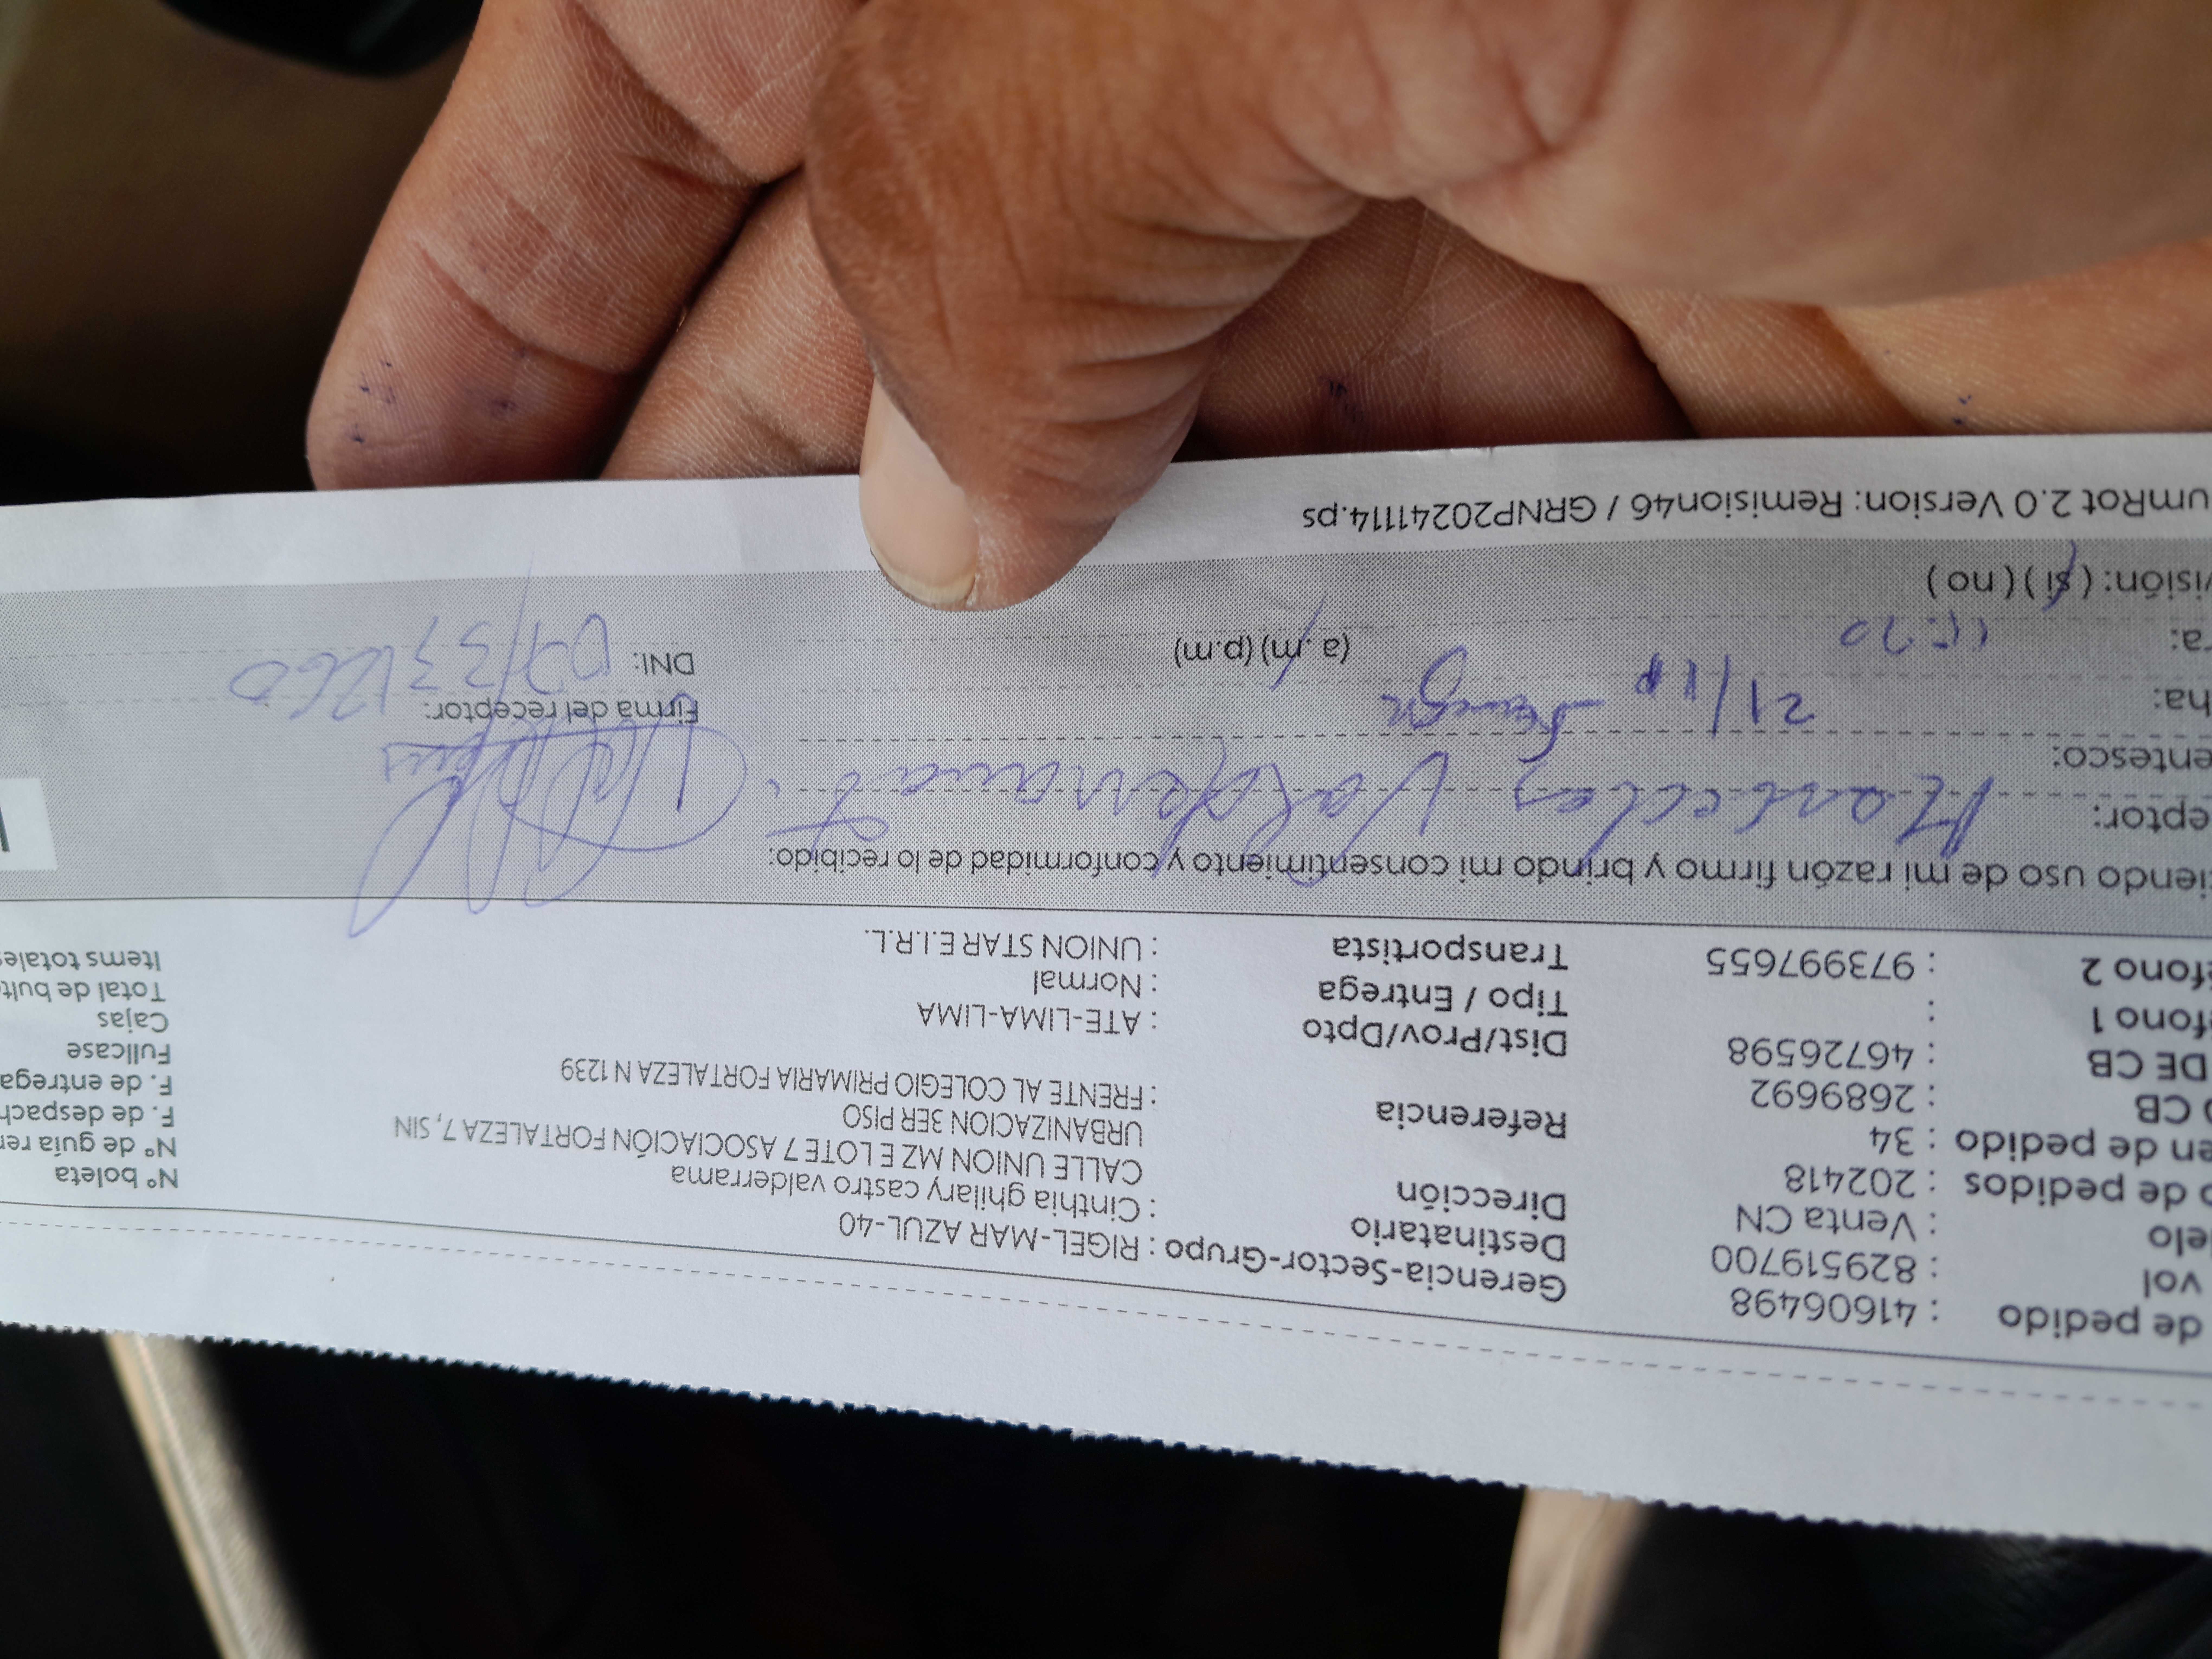 de pedido : 41606498 Gerencia-Sector-Grupo : RIGEL-MAR AZUL-40
vol : 829519700 Destinatario : Cinthia ghilary castro valderrama Nº boleta
elo : Venta CN Dirección CALLE UNION MZ E LOTE 7 ASOCIACIÓN FORTALEZA 7, SIN Nº de guía re
o de pedidos : 202418 URBANIZACION 3ER PISO F. de despach
en de pedido : 34 Referencia : FRENTE AL COLEGIO PRIMARIA FORTALEZA N 1239 F. de entrega
o CB : 2689692 Fullcase
DE CB : 46726598 Dist/Prov/Dpto : ATE-LIMA-LIMA Cajas
éfono 1 : Tipo / Entrega : Normal Total de bult
éfono 2 : 973997655 Transportista : UNION STAR E.I.R.L. Items totale
ciendo uso de mi razón firmo y brindo mi consentimiento y conformidad de lo recibido:
eptor: Valderrama
entesco: Firma del receptor:
ha: 21/11
ra: (a.m) (p.m) DNI:
visión: (sí) (no)
umRot 2.0 Version: Remision46 / GRNP20241114.ps